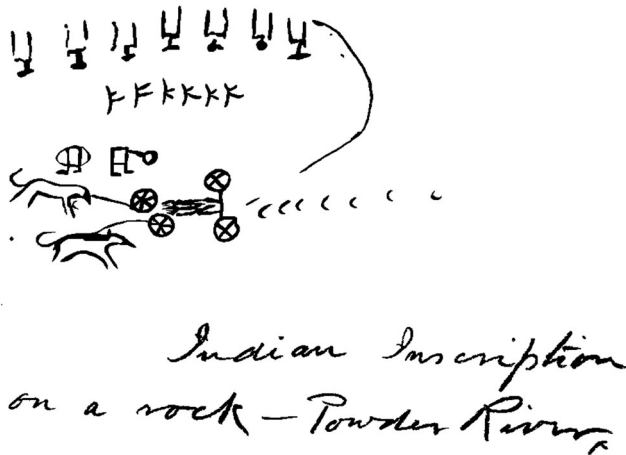 Indian Inscription
on a rock – Powder River,